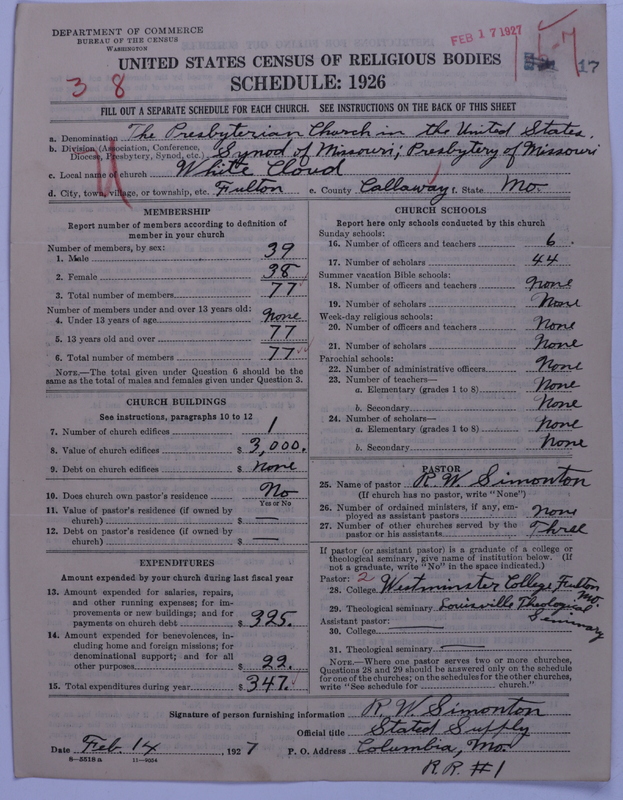 DEPARTMENT OF COMMERCE
BUREAU OF THE CENSUS
WASHINGTON
FEB 17 1927
17
UNITED STATES CENSUS OF RELIGIOUS BODIES
3 8
SCHEDULE: 1926
FILL OUT A SEPARATE SCHEDULE FOR EACH CHURCH. SEE INSTRUCTIONS ON THE BACK OF THIS SHEET
a. Denomination The Presbyterian Church in the United States.
b. Division (Association, Conference, Diocese, Presbytery, Synod, etc.) Synod of Missouri; Presbytery of Missouri
c. Local name of church White Cloud
d. City, town, village, or township, etc. Fulton e. County Callaway f. State Mo.
MEMBERSHIP
Report number of members according to definition of
member in your church
Number of members, by sex:
1. Male 39
2. Female 38
3. Total number of members 77
Number of members under and over 13 years old:
4. Under 13 years of age none
5. 13 years old and over 77
6. Total number of members 77
NOTE.—The total given under Question 6 should be
same as the total of males and females given under Question 3.
CHURCH BUILDINGS
See instructions, paragraphs 10 to 12
7. Number of church edifices 1
8. Value of church edifices $ 3,000.
9. Debt on church edifices $ none
10. Does church own pastor's residence No
Yes or No
11. Value of pastor's residence (if owned by
church) $ —
12. Debt on pastor's residence (if owned by
church) $ —
EXPENDITURES
Amount expended by your church during last fiscal year
13. Amount expended for salaries, repairs,
and other running expenses; for im-
provements or new buildings; and for
payments on church debt $ 325.
14. Amount expended for benevolences, in-
cluding home and foreign missions; for
denominational support; and for all
other purposes $ 22.
15. Total expenditures during year $ 347.
CHURCH SCHOOLS
Report here only schools conducted by this church
Sunday schools:
16. Number of officers and teachers 6
17. Number of scholars 44
Summer vacation Bible schools:
18. Number of officers and teachers none
19. Number of scholars None
Week-day religious schools:
20. Number of officers and teachers None
21. Number of scholars None
Parochial schools:
22. Number of administrative officers None
23. Number of teachers—
a. Elementary (grades 1 to 8) None
b. Secondary None
24. Number of scholars—
a. Elementary (grades 1 to 8) None
b. Secondary None
PASTOR
25. Name of pastor R W Simonton
(If church has no pastor, write "None")
26. Number of ordained ministers, if any, em-
ployed as assistant pastors none
27. Number of other churches served by the
pastor or his assistants Three
If pastor (or assistant pastor) is a graduate of a college or
theological seminary, give name of institution below. (If
not a graduate, write "No" in the space indicated.)
Pastor: 2
28. College Westminster College Fulton Mo.
29. Theological seminary Louisville Theological Seminary
Assistant pastor:
30. College —
31. Theological seminary —
NOTE.—Where one pastor serves two or more churches,
Questions 28 and 29 should be answered only on the schedule
for one of the churches; on the schedules for the other churches,
write "See schedule for church."
Signature of person furnishing information R. W. Simonton
Official title Stated Supply
Date Feb. 14, 1927 P. O. Address Columbia, Mo.
R.R. #1
8—5518 a 11—9054